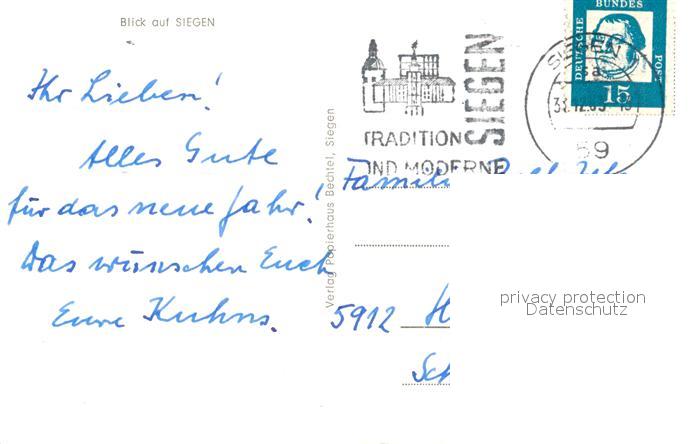 Blick auf SIEGEN
Ihr Lieben!
Alles Gute
für das neue Jahr!
Das wünschen Euch
Eure Kuhns.
Verlag Papierhaus Bechtel, Siegen
TRADITION
UND MODERNE
SIEGEN
SIEGEN
31.12.63
59
DEUTSCHE
BUNDES
POST
15
Familie
5912 H
Sch
privacy protection
Datenschutz